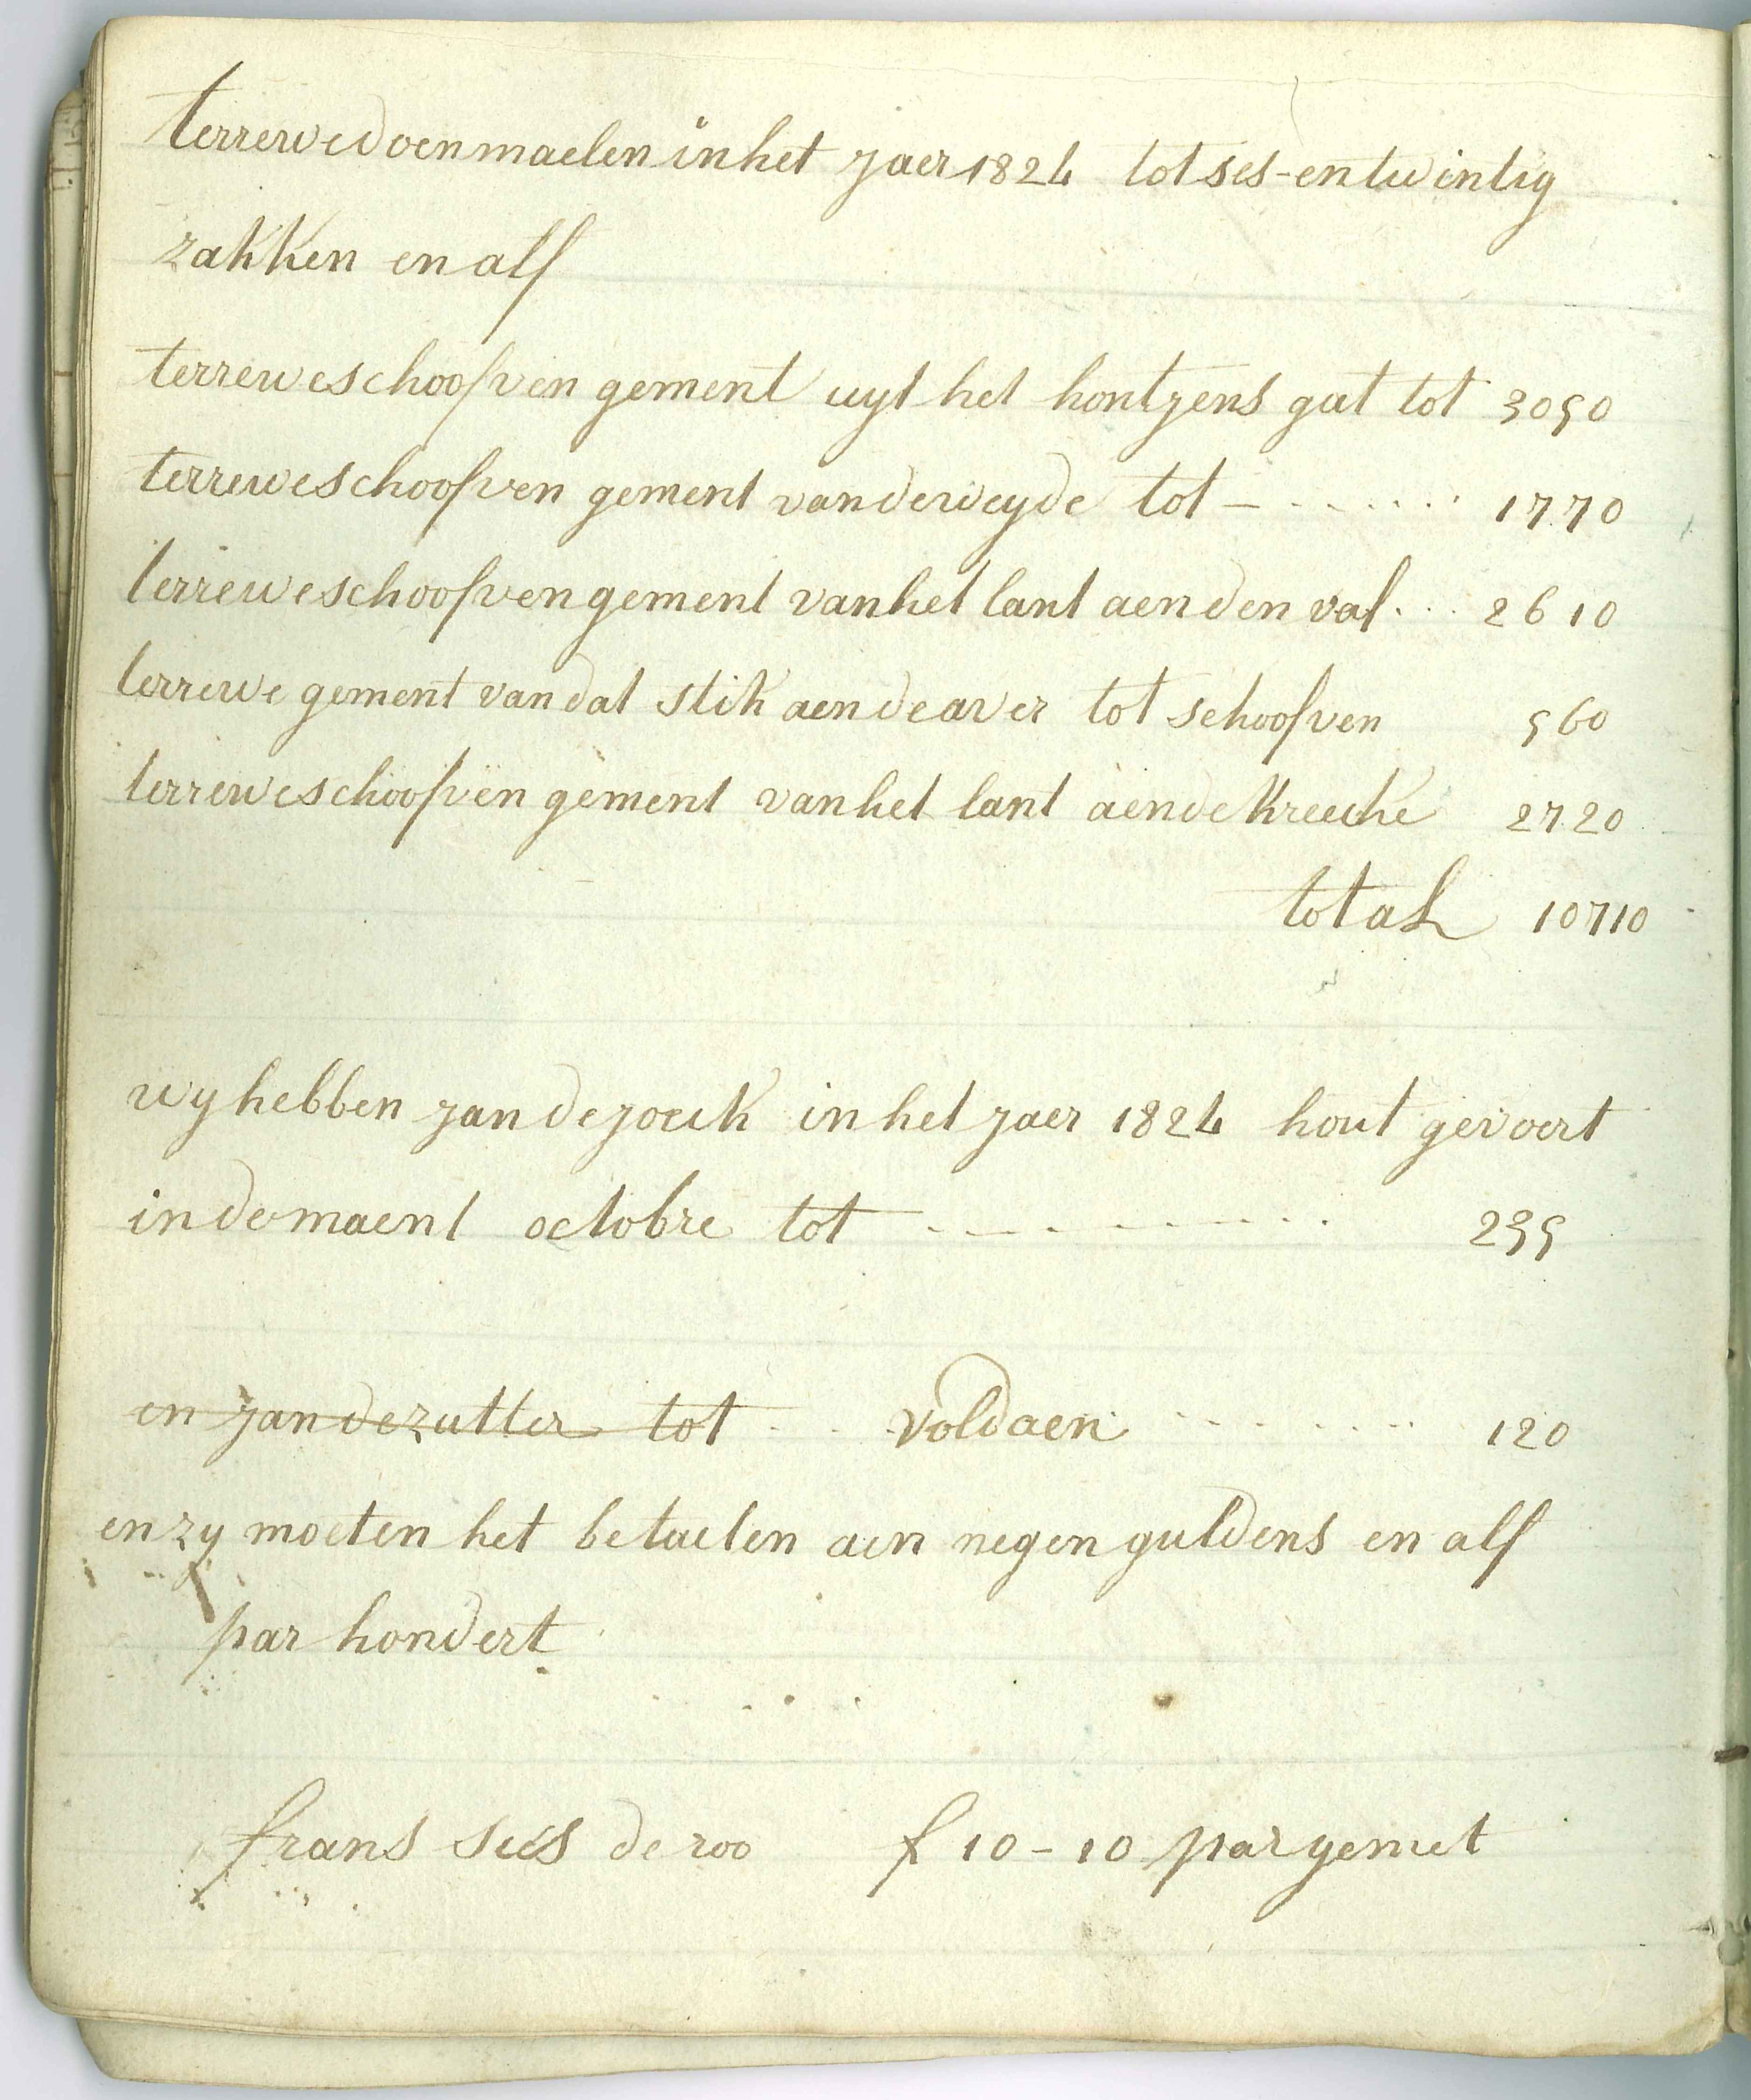 terrewe doen maelen in het jaer 1824 tot ses-en twintig
zakken en alf
terrewe schoofven gement uyt het hontzens gat tot 3050
terrewe schoofven gement van de weyde tot - - - - - - 1770
terrewe schoofven gement van het lant aen den val . . . 2610
terrewe gement van dat stik aen de aver tot schoofven 560
terrewe schoofven gement van het lant aen de kreeke 2720
totaL 10710
wy hebben jan de jonk in het jaer 1824 hout gevoert
in de maent octobre tot - - - - - - - 235
en jan de zutter tot . . . voldaen . . . . . . . 120
en zy moeten het betaelen aen negen guldens en alf
par hondert
frans sies de roo f 10-10 par gemet